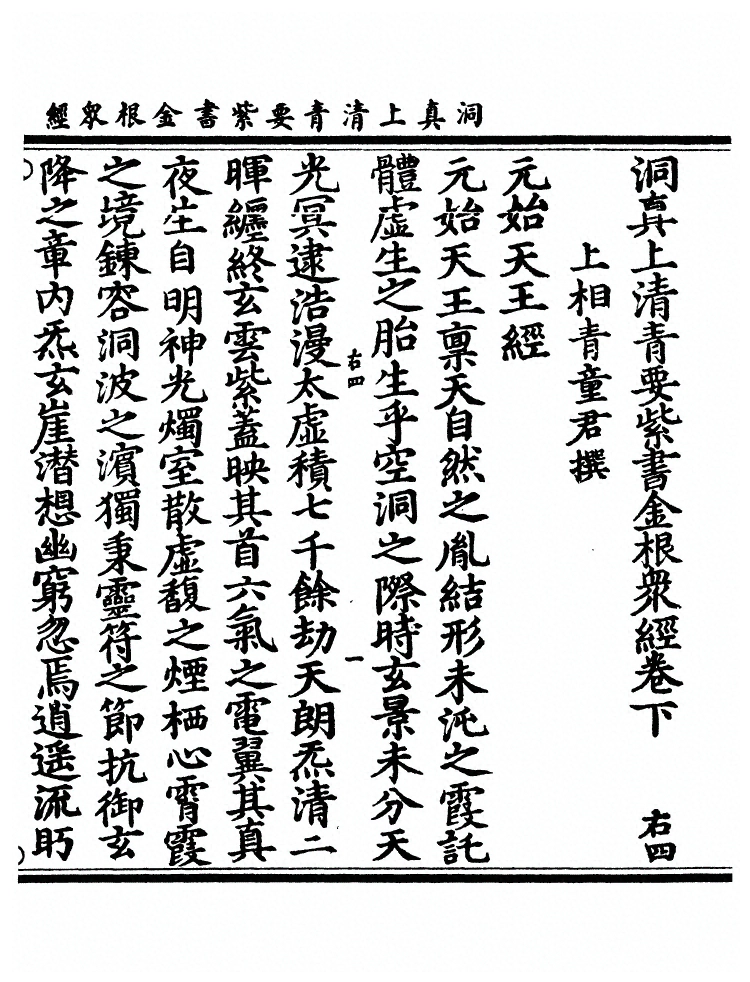 洞真上清青要紫書金根眾經
洞真上清青要紫書金根衆經卷下
右四
上相青童君撰
元始天王經
元始天王稟天自然之胤結形未沌之霞託
體虛生之胎生乎空洞之際時玄景未分天
右四
一
光冥逮浩漫太虛積七千餘劫天朗炁清二
暉纏絡玄雲紫蓋映其首六氣之電翼其真
夜生自明神光燭室散虛馥之煙栖心霄霞
之境鍊容洞波之濱獨秉靈符之節抗御玄
降之章內炁玄崖潛想幽窮忽焉逍遥流眄